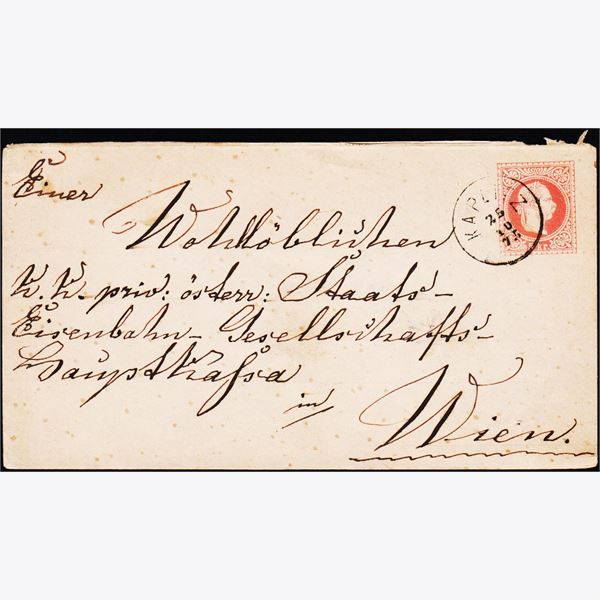 Einer
Wohllöblichen
K. K. priv: österr: Staats-
Eisenbahn-Gesellschafts-
Hauptkassa
in
Wien.
25
10
75